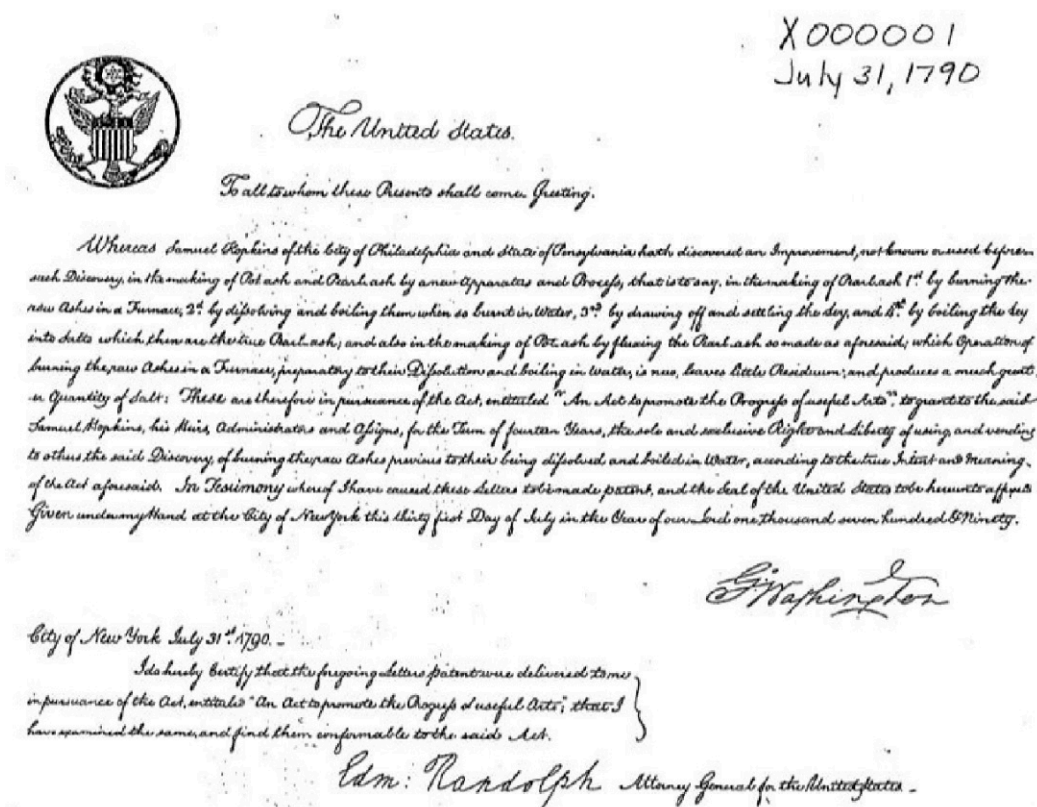 X000001
July 31, 1790
The United States.
To all to whom these Presents shall come Greeting.
Whereas Samuel Hopkins of the City of Philadelphia and State of Pensylvania hath discovered an Improvement, not known or used before
such Discovery, in the making of Pot ash and Pearl ash by a new Apparatus and Process, that is to say, in the making of Pearl ash 1st by burning the
raw Ashes in a Furnace, 2d by dissolving and boiling them when so burnt in Water, 3rd by drawing off and settling the Ley, and 4th by boiling the Ley
into Salts which then are the true Pearl ash; and also in the making of Pot ash by fluxing the Pearl ash so made as aforesaid; which Operation of
burning the raw Ashes in a Furnace, preparatory to their Dissolution and boiling in Water, is new, leaves little Residuum; and produces a much great-
er Quantity of Salt: These are therefore in pursuance of the Act, entituled "An Act to promote the Progress of useful Arts", to grant to the said
Samuel Hopkins, his Heirs, Administrators and Assigns, for the Term of fourteen Years, the sole and exclusive Right and Liberty of using, and vending
to others the said Discovery, of burning the raw Ashes previous to their being dissolved and boiled in Water, according to the true Intent and Meaning
of the Act aforesaid. In Testimony whereof I have caused these Letters to be made patent, and the Seal of the United States to be hereunto affixed
Given under my Hand at the City of New York this thirty first Day of July in the Year of our Lord one thousand seven hundred & Ninety.
G. Washington
City of New York July 31st 1790. -
I do hereby Certify that the foregoing Letters patent were delivered to me
in pursuance of the Act, entituled "An Act to promote the Progress of useful Arts"; that I
have examined the same, and find them conformable to the said Act.
Edm: Randolph Attorney General for the United States. -